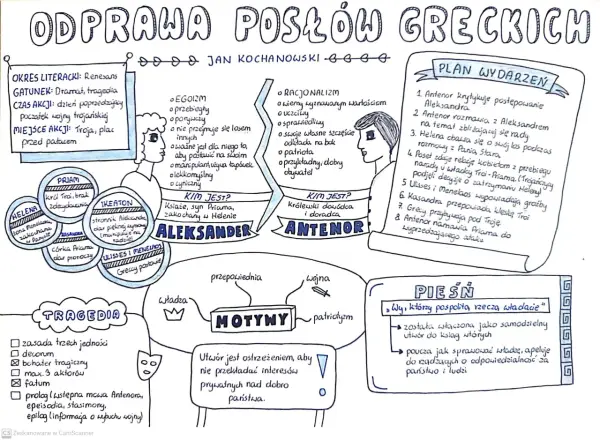 ODPRAWA POSŁÓW GRECKICH
JAN KOCHANOWSKI
OKRES LITERACKI: Renesans
GATUNEK: Dramat, tragedia
CZAS AKCJI: dzień poprzedzający
początek wojny trojańskiej
MIEJSCE AKCJI: Troja, plac
przed pałacem
o EGOIZM
o przebiegły
o porywczy
o nie przejmuje się losem
innych
o ważne jest dla niego to,
aby postawić na swoim
o manipulantów łapówek
o lekkomyślny
o cyniczny
KIM JEST?
Książę, syn Priama,
zakochany w Helenie
ALEKSANDER
o RACJONALIZM
o wierny wyznawanym wartościom
o uczciwy
o sprawiedliwy
o swoje własne szczęście
odkłada na bok
o patriota
o przykładny, dobry
obywatel
KIM JEST?
królewski dowódca
i doradca
ANTENOR
PLAN WYDARZEŃ
1. Antenor krytykuje postępowanie
Aleksandra
2. Antenor rozmawia z Aleksandrem
na temat zbliżającej się rady
3. Helena obawia się o swój los podczas
rozmowy z Panią Starą
4. Poseł zdaje relację kobietom z przebiegu
narady u władcy Troi - Priama (Trojańczycy
podjęli decyzję o zatrzymaniu Heleny)
5. Ulisses i Menelaos wypowiadają groźby
6. Kasandra przepowiada klęskę Troi
7. Grecy przybywają pod Troję
8. Antenor namawia Priama do
wyprzedzającego ataku
PRIAM
król Troi, brak
zdecydowania
HELENA
żona Menelaosa,
zakochana
w Parysie
IKETAON
stronnik Aleksandra,
dar pięknej wymowy
KASANDRA
córka Priama,
dar proroczy
ULISSES I MENELAOS
Greccy posłowie
TRAGEDIA
zasada trzech jedności
decorum
bohater tragiczny
max. 3 aktorów
fatum
prolog (wstępna mowa Antenora),
epeisodia, stasimony,
epilog (informacja o wybuchu wojny)
przepowiednia
wojna
władza
patriotyzm
MOTYWY
Utwór jest ostrzeżeniem, aby
nie przekładać interesów
prywatnych nad dobro
państwa.
!
PIEŚŃ
„Wy, którzy pospolitą rzeczą władacie"
została włączona jako samodzielny
utwór do ksiąg wtórych
poucza jak sprawować władzę, apeluje
do rządzących o odpowiedzialność za
państwo i ludzi
CS Zeskanowane w CamScanner